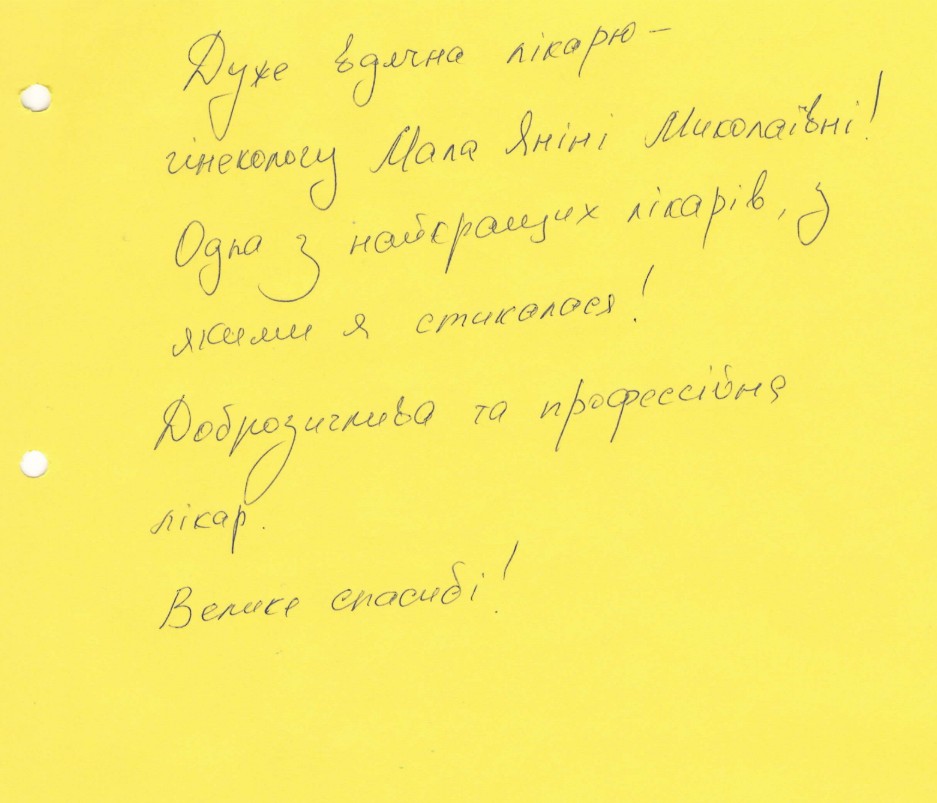 Дуже вдячна лікарю-
гінекологу Мала Яніні Миколаївні!
Одна з найкращих лікарів, з
якими я стикалася!
Доброзичлива та профессійна
лікар.
Велике спасибі!